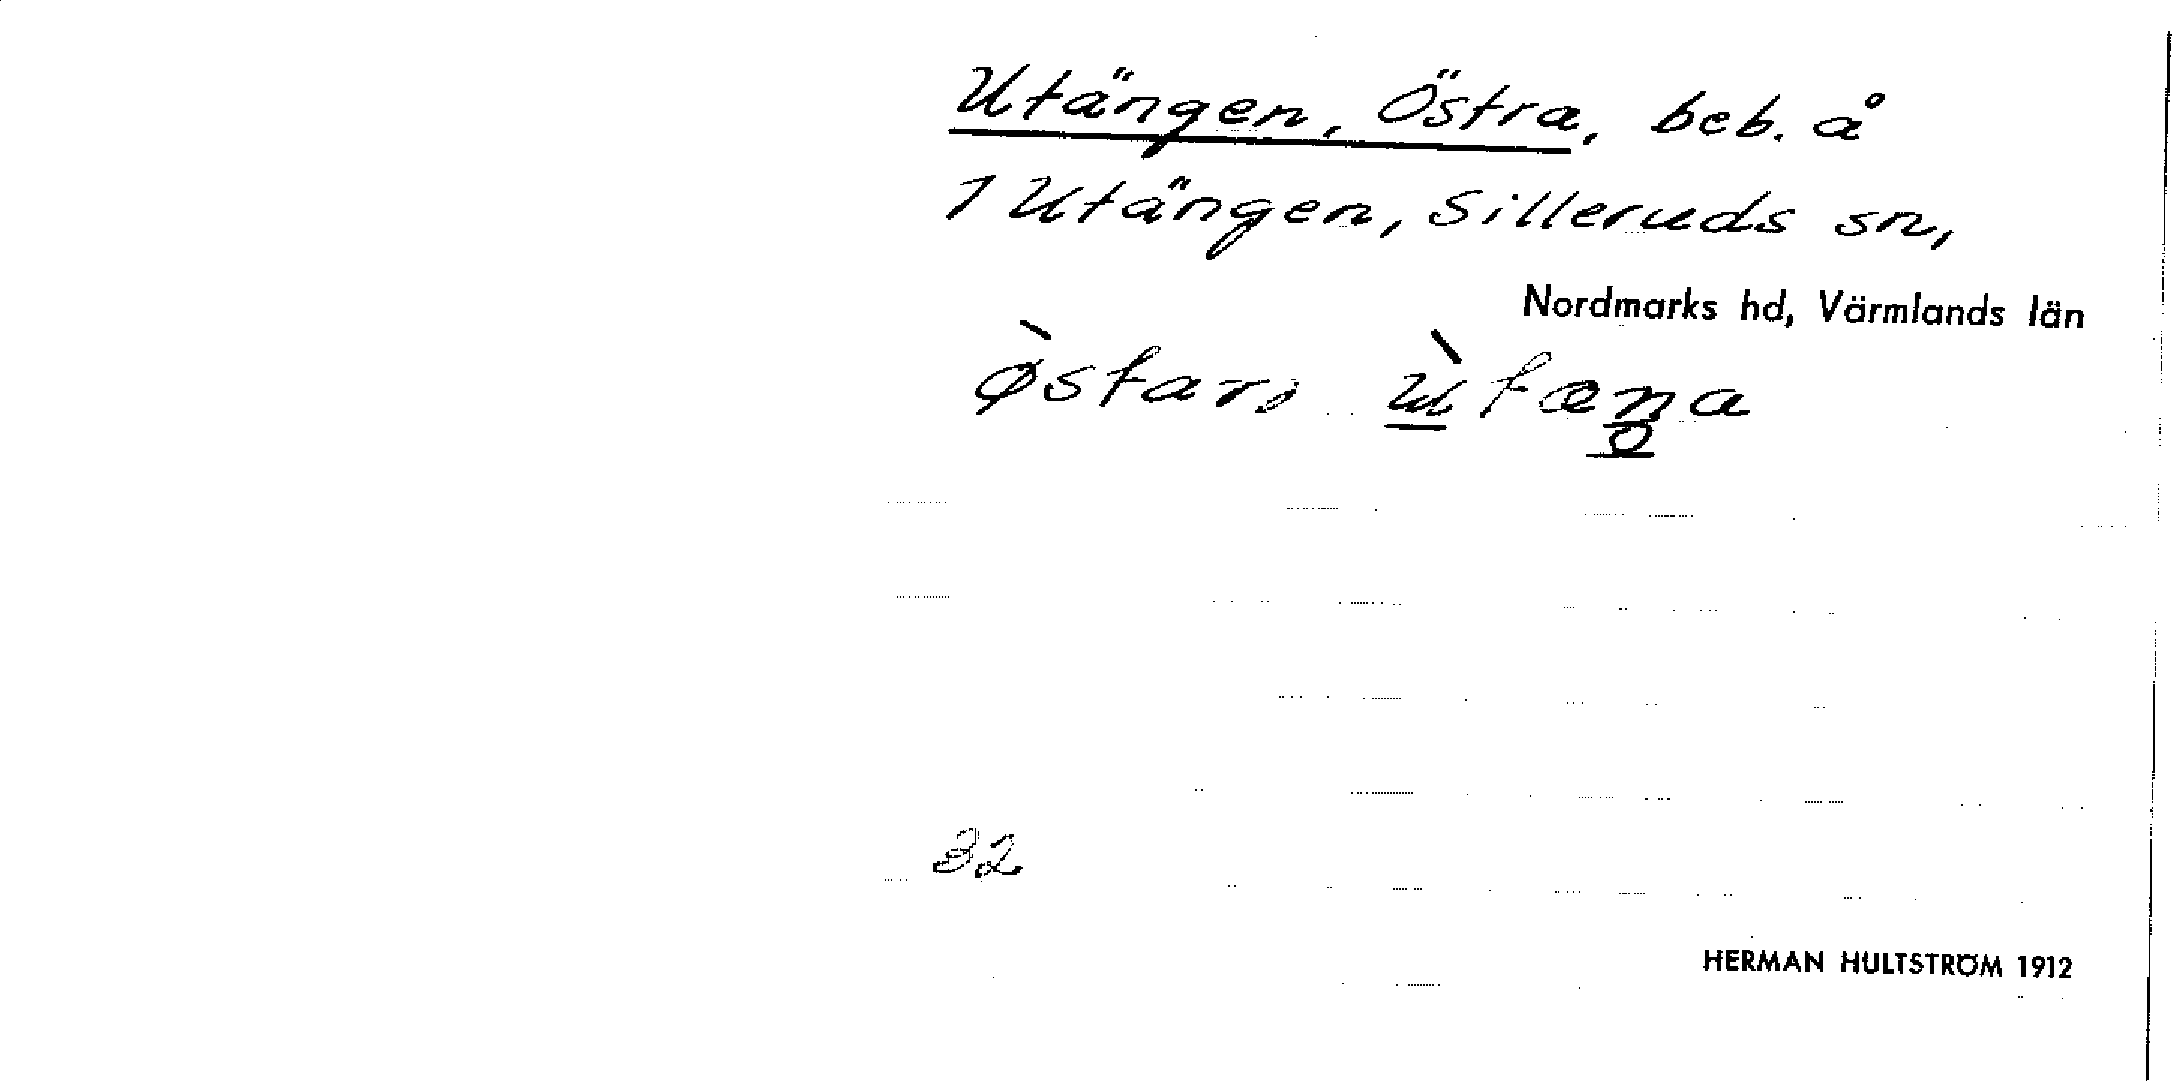 Utängen, Östra, beb. å
1 Utängen, Silleruds sn,
Nordmarks hd, Värmlands län
32
HERMAN HULTSTRÖM 1912